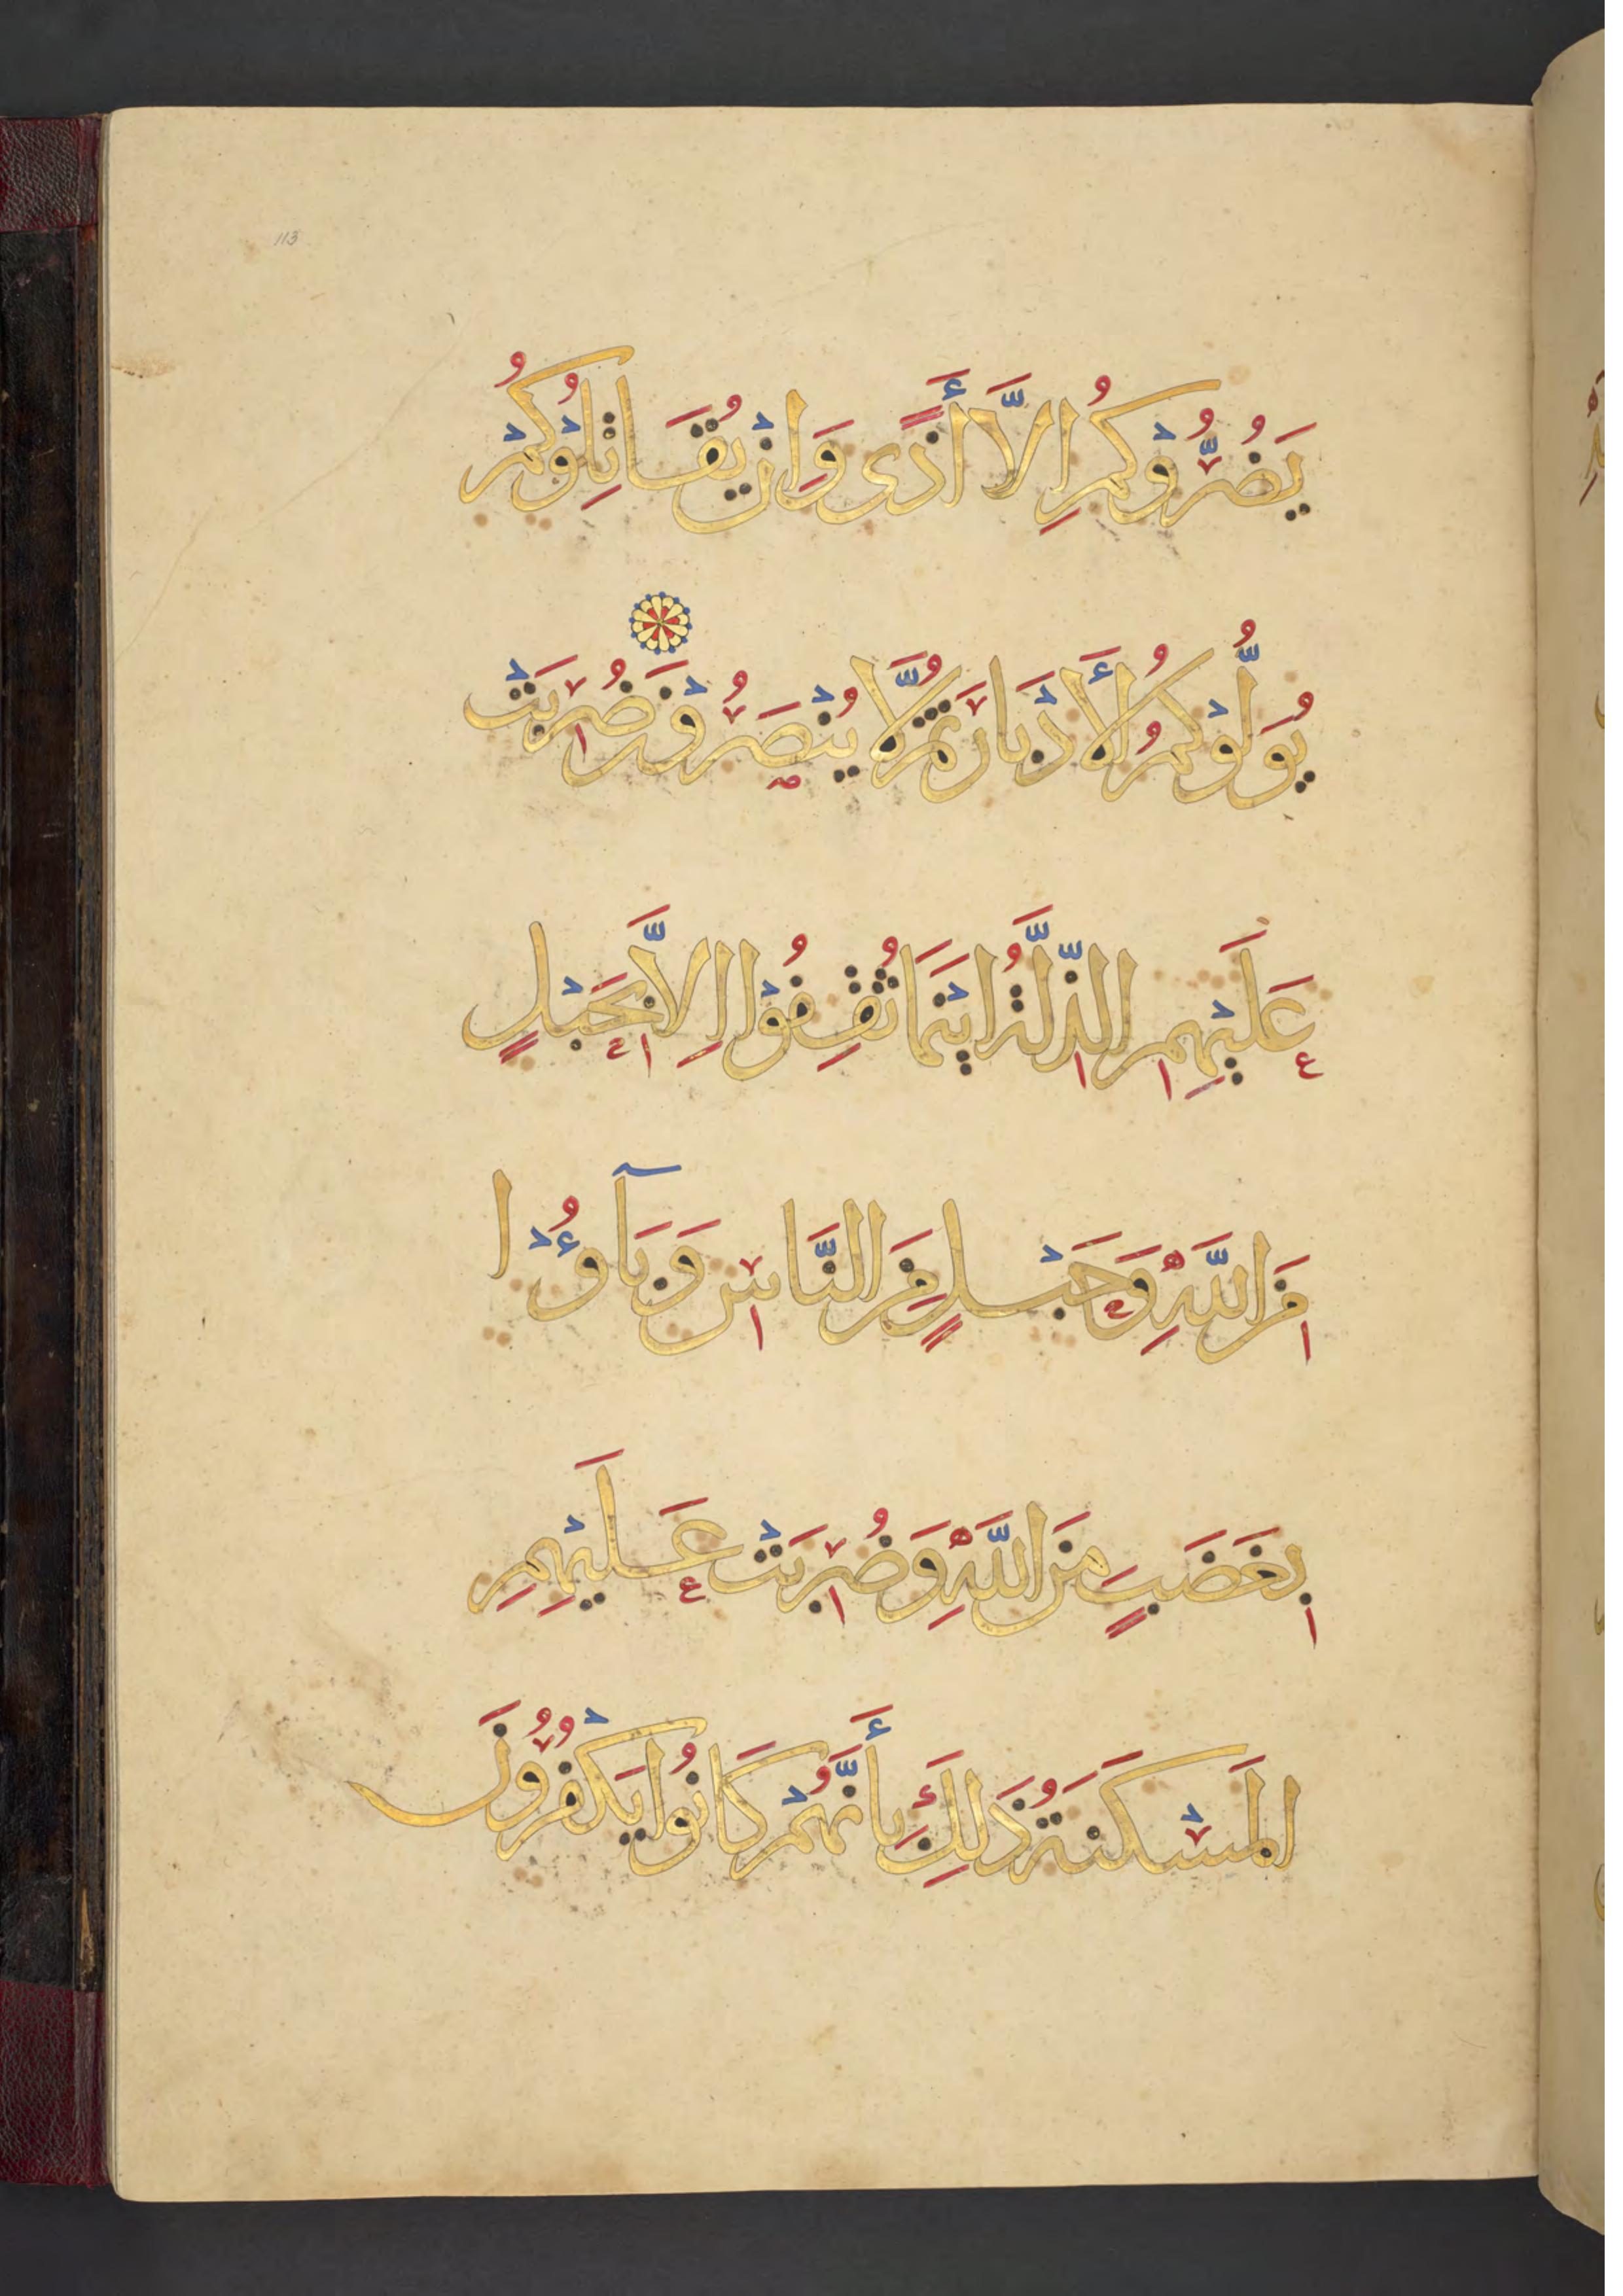 113
يَضُرُّوْكُمُ اِلاَّ أَذًى وَاِنْ يُقَاتِلُوْكُمْ
يُوَلُّوْكُمُ الأَدْبَارَ ثُمَّ لاَ يُنْصَرُوْنَ ضُرِبَتْ
عَلَيْهِمِ الذِّلَّةُ اَيْنَمَا ثُقِفُوْا اِلاَّ بِحَبْلٍ
مِنَ اللَّهِ وَحَبْلٍ مِنَ النَّاسِ وَبَآؤُوْا
بِغَضَبٍ مِنَ اللَّهِ وَضُرِبَتْ عَلَيْهِمِ
المَسْكَنَةُ ذَلِكَ بِأَنَّهُمْ كَانُوا يَكْفُرُوْنَ